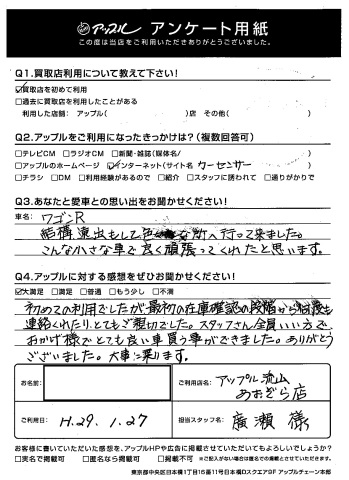 アップル アンケート用紙
この度は当店をご利用いただきありがとうございました。
Q1.買取店利用について教えて下さい!
☑買取店を初めて利用
□過去に買取店を利用したことがある
利用した店舗: アップル( )店 その他( )
Q2.アップルをご利用になったきっかけは?(複数回答可)
□テレビCM □ラジオCM □新聞・雑誌(媒体名/ )
□アップルのホームページ ☑インターネット(サイト名 カーセンサー )
□チラシ □DM □利用経験があるので □紹介 □スタッフに誘われて □通りがかりで
Q3.あなたと愛車との思い出をお聞かせください!
車名: ワゴンR
結構遠出もして色々な所へ行って来ました。
こんな小さな車で良く頑張ってくれたと思います。
Q4.アップルに対する感想をぜひお聞かせください!
☑大満足 □満足 □普通 □もう少し □不満
初めての利用でしたが最初の在庫確認の段階から何度も
連絡くれたり、とてもご親切でした。スタッフさん全員いい方で
おかげ様でとても良い車買う事ができました。ありがとう
ございました。大事に乗ります。
お名前:
ご利用店名: アップル流山
おおぞら店
ご利用日: H.29.1.27
担当スタッフ名: 廣瀬 様
お客様に書いていただいた感想を、アップルHPや広告に掲載させていただいてもよろしいでしょうか?
□実名で掲載可 □匿名なら掲載可 □掲載不可 ※ご記入がない場合は匿名での掲載とさせていただきます。
東京都中央区日本橋1丁目16番11号日本橋Dスクエア9F アップルチェーン本部